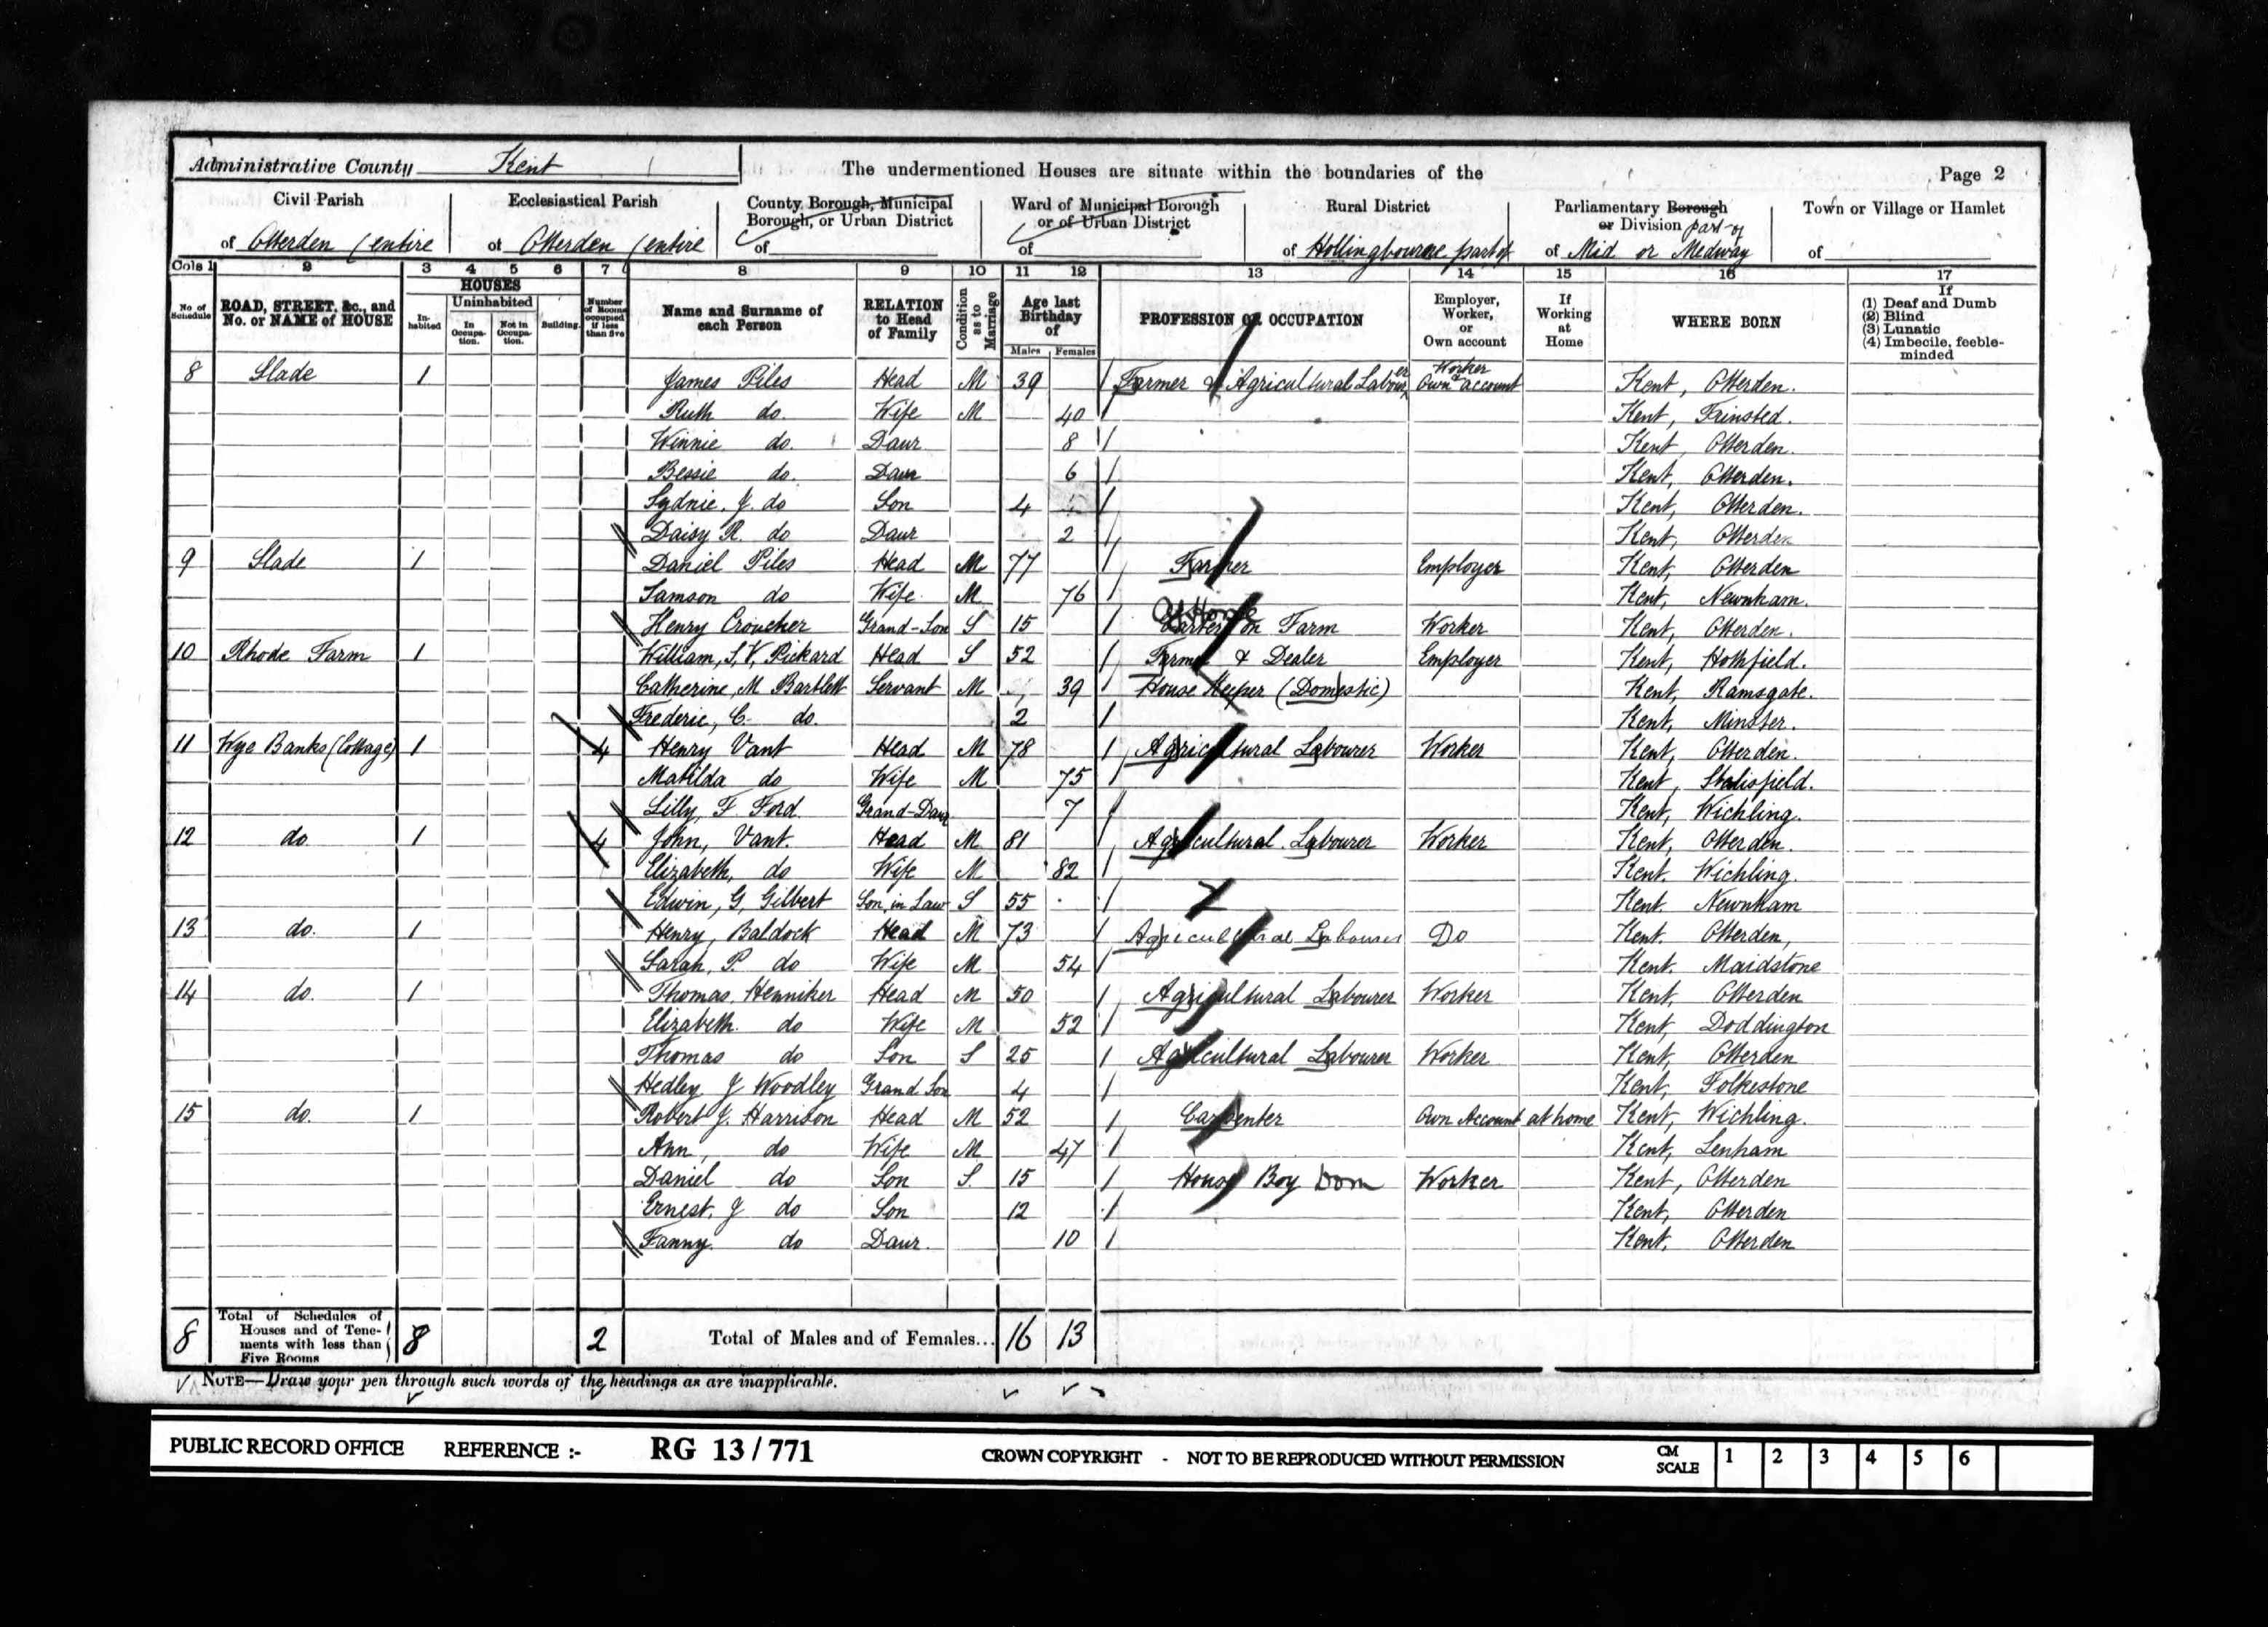 Administrative County Kent The undermentioned Houses are situate within the boundaries of the Page 2
Civil Parish Ecclesiastical Parish County Borough, Municipal Borough, or Urban District Ward of Municipal Borough or of Urban District Rural District Parliamentary Borough or Division part of Town or Village or Hamlet
of Otterden (entire of Otterden (entire of of of Hollingbourne part of of Mid or Medway of
Cols 1 2 3 4 5 6 7 8 9 10 11 12 13 14 15 16 17
No of Schedule ROAD, STREET, &c., and No. or NAME of HOUSE HOUSES Inhabited Uninhabited In Occupation. Not in Occupation. Building. Number of Rooms occupied if less than five Name and Surname of each Person RELATION to Head of Family Condition as to Marriage Age last Birthday of Males Females PROFESSION OR OCCUPATION Employer, Worker, or Own account If Working at Home WHERE BORN If (1) Deaf and Dumb (2) Blind (3) Lunatic (4) Imbecile, feeble-minded
8 Slade 1 James Piles Head M 39 Farmer & Agricultural Labourer Worker Own account Kent, Otterden.
Ruth do. Wife M 40 Kent, Frinsted.
Winnie do. Daur 8 Kent, Otterden.
Bessie do. Daur 6 Kent, Otterden.
Sydnie. J. do Son 4 Kent, Otterden.
Daisy R. do Daur 2 Kent, Otterden
9 Slade 1 Daniel Piles Head M 77 Farmer Employer Kent, Otterden
Tamson do Wife M 76 Kent, Newnham.
Henry Croucher Grand-Son S 15 on Farm Worker Kent, Otterden.
10 Rhode Farm 1 William, S, V, Pickard Head S 52 Farmer & Dealer Employer Kent, Hothfield.
Catherine, M Bartlett Servant M 39 House Keeper (Domestic) Kent, Ramsgate.
Frederic, C. do. 2 Kent, Minster.
11 Wye Banks (Cottage) 1 4 Henry Vant Head M 78 Agricultural Labourer Worker Kent, Otterden.
Matilda do Wife M 75 Kent, Stalisfield.
Lilly, F Ford Grand-Daur 7 Kent, Wichling.
12 do. 1 4 John, Vant. Head M 81 Agricultural Labourer Worker Kent, Otterden.
Elizabeth, do Wife M 82 Kent. Wichling.
Edwin, G, Gilbert Son, in Law S 55 Kent. Newnham
13 do. 1 Henry, Baldock Head M 73 Agricultural Labourer Do Kent. Otterden,
Sarah, P. do Wife M 54 Kent. Maidstone
14 do. 1 Thomas, Henniker Head M 50 Agricultural Labourer Worker Kent, Otterden
Elizabeth. do Wife M 52 Kent, Doddington
Thomas do Son S 25 Agricultural Labourer Worker Kent, Otterden
Hedley J Woodley Grand Son 4 Kent, Folkestone
15 do. 1 Robert J. Harrison Head M 52 Carpenter Own Account at home Kent, Wichling.
Ann, do Wife M 47 Kent, Lenham
Daniel do Son S. 15 House Boy Dom Worker Kent, Otterden
Ernest. J do Son 12 Kent, Otterden
Fanny. do Daur. 10 Kent, Otterden
8 Total of Schedules of Houses and of Tenements with less than Five Rooms 8 2 Total of Males and of Females... 16 13
NOTE—Draw your pen through such words of the headings as are inapplicable.
PUBLIC RECORD OFFICE REFERENCE :- RG 13/771 CROWN COPYRIGHT - NOT TO BE REPRODUCED WITHOUT PERMISSION CM SCALE 1 2 3 4 5 6